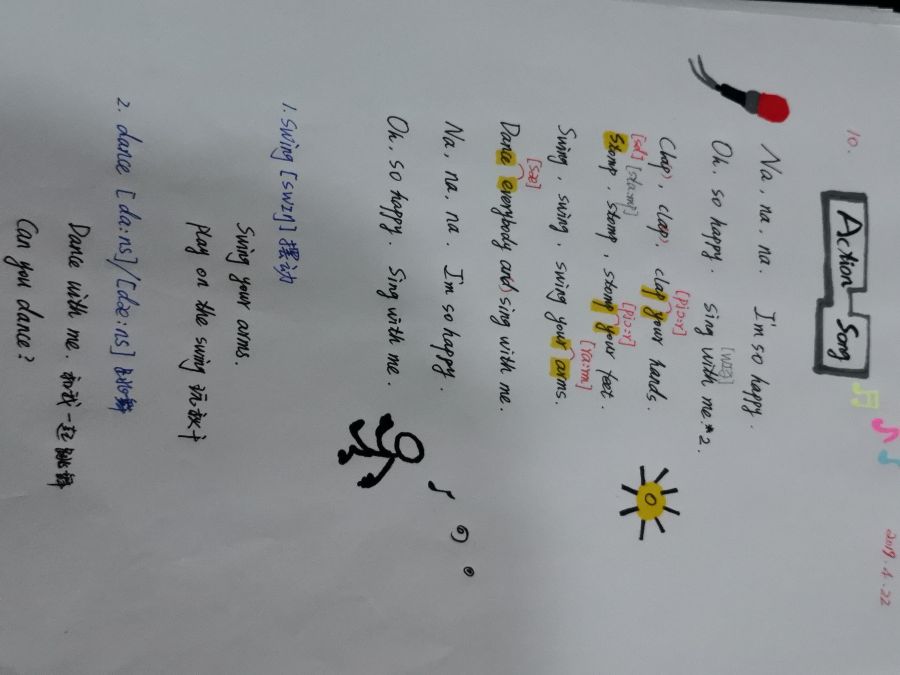 10.
Action Song
2019.4.22
Na, na, na. I'm so happy.
Oh, so happy. sing with me.*2.
[wɪð]
Clap, clap, clap your hands.
[pjɔ:r]
Stomp, stomp, stomp your feet.
[sd] [stɑ:mp] [pjɔ:r]
Swing, swing, swing your arms.
[rɑ:rm]
Dance everybody and sing with me.
[sæ]
Na, na, na. I'm so happy.
Oh, so happy. Sing with me.
1. Swing [swɪŋ] 摆动
Swing your arms.
play on the swing 玩秋千
2. dance [dɑ:ns]/[dæ:ns] 跳舞
Dance with me. 和我一起跳舞
Can you dance?